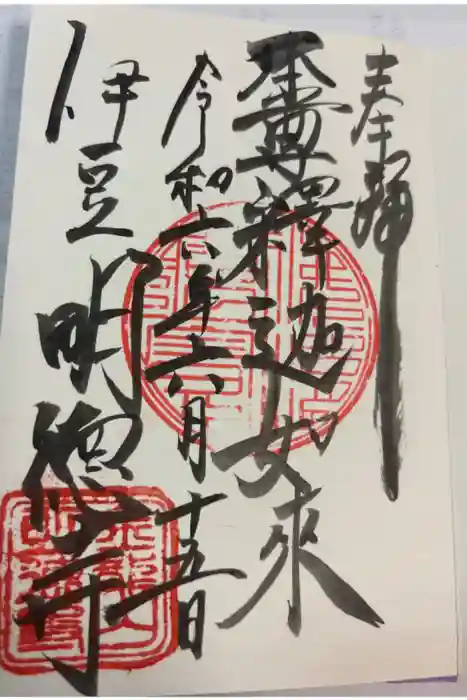 奉拝
本尊釋迦如來
令和六年六月十五日
伊豆明德寺